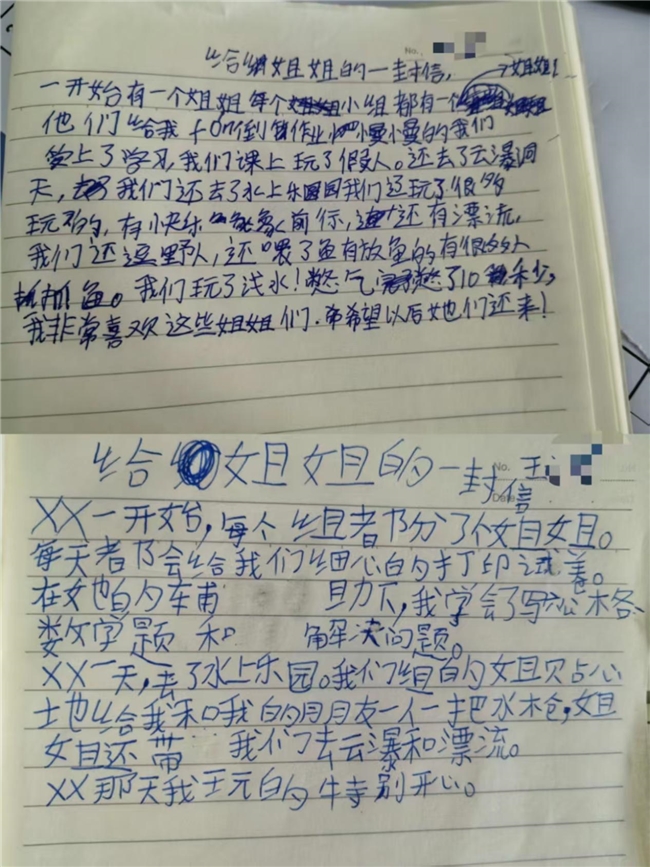 No.
给姐姐的一封信,
→姐姐!
一开始有一个姐姐 每个小组都有一个
他们给我 作业 慢小曼的我们
上了学习,我们课上玩了假人。还去了云瀑洞
天, 我们还去了水上乐园我们还玩了很多
玩的,有快乐 前行,还有漂流,
我们还逗野人,还喂了鱼有放鱼的有很多人
抓鱼。我们玩了浅水!憋气 憋了10秒,
我非常喜欢这些姐姐们.希望以后她们还来!
给姐姐的一封信
No. 王
Date
XX一开始,每个组都分了个姐姐。
每天都会给我们细心的打印试卷。
在她的车甫 助下,我学会了写
数学题 和 解决问题。
XX一天,去了水上乐园。我们组的姐贝占心
地给我和我的朋友一人一把水枪,姐
姐还带 我们去云瀑和漂流。
XX那天我玩的特别开心。